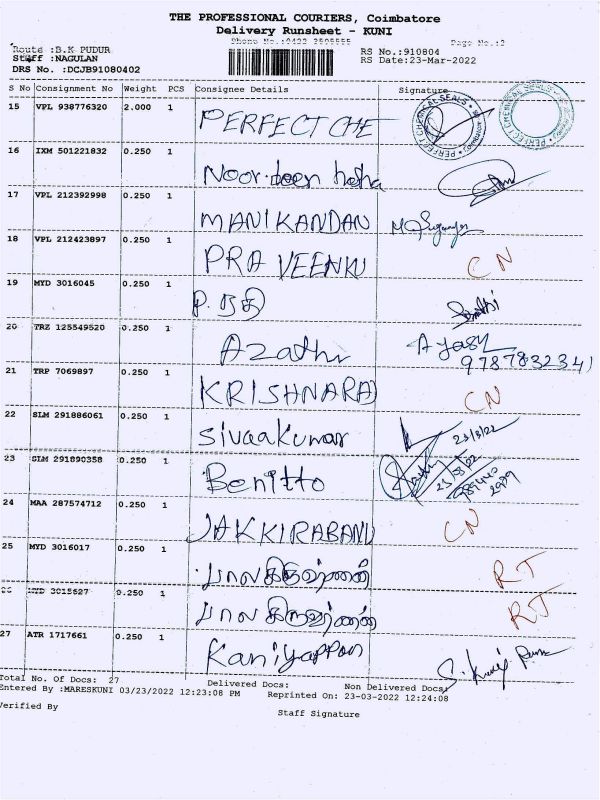 THE PROFESSIONAL COURIERS, Coimbatore
Delivery Runsheet - KUNI
Phone No.:0422 2595555 Page No.:2
Route :B.K PUDUR RS No.:910804
Staff :NAGULAN RS Date:23-Mar-2022
DRS No. :DCJB91080402
S No Consignment No Weight PCS Consignee Details Signature
15 VPL 938776320 2.000 1 PERFECT CHE PERFECT CHEMICAL SEALS COIMBATORE PERFECT CHEMICAL SEALS
16 IXM 501221832 0.250 1 Noordeen
17 VPL 212392998 0.250 1 MANIKANDAN
18 VPL 212423897 0.250 1 PRAVEENKU CN
19 MYD 3016045 0.250 1
20 TRZ 125549520 0.250 1 9787832341
21 TRP 7069897 0.250 1 KRISHNARA CN
22 SLM 291886061 0.250 1 Sivaakumar 23/3/22
23 SLM 291890358 0.250 1 Benitto
24 MAA 287574712 0.250 1 JAKKIRABANU CN
25 MYD 3016017 0.250 1 RT
26 MYD 3015627 0.250 1 RT
27 ATR 1717661 0.250 1 Kaniyappan
Total No. Of Docs: 27 Delivered Docs: Non Delivered Docs:
Entered By :MARESKUNI 03/23/2022 12:23:08 PM Reprinted On: 23-03-2022 12:24:08
Verified By
Staff Signature